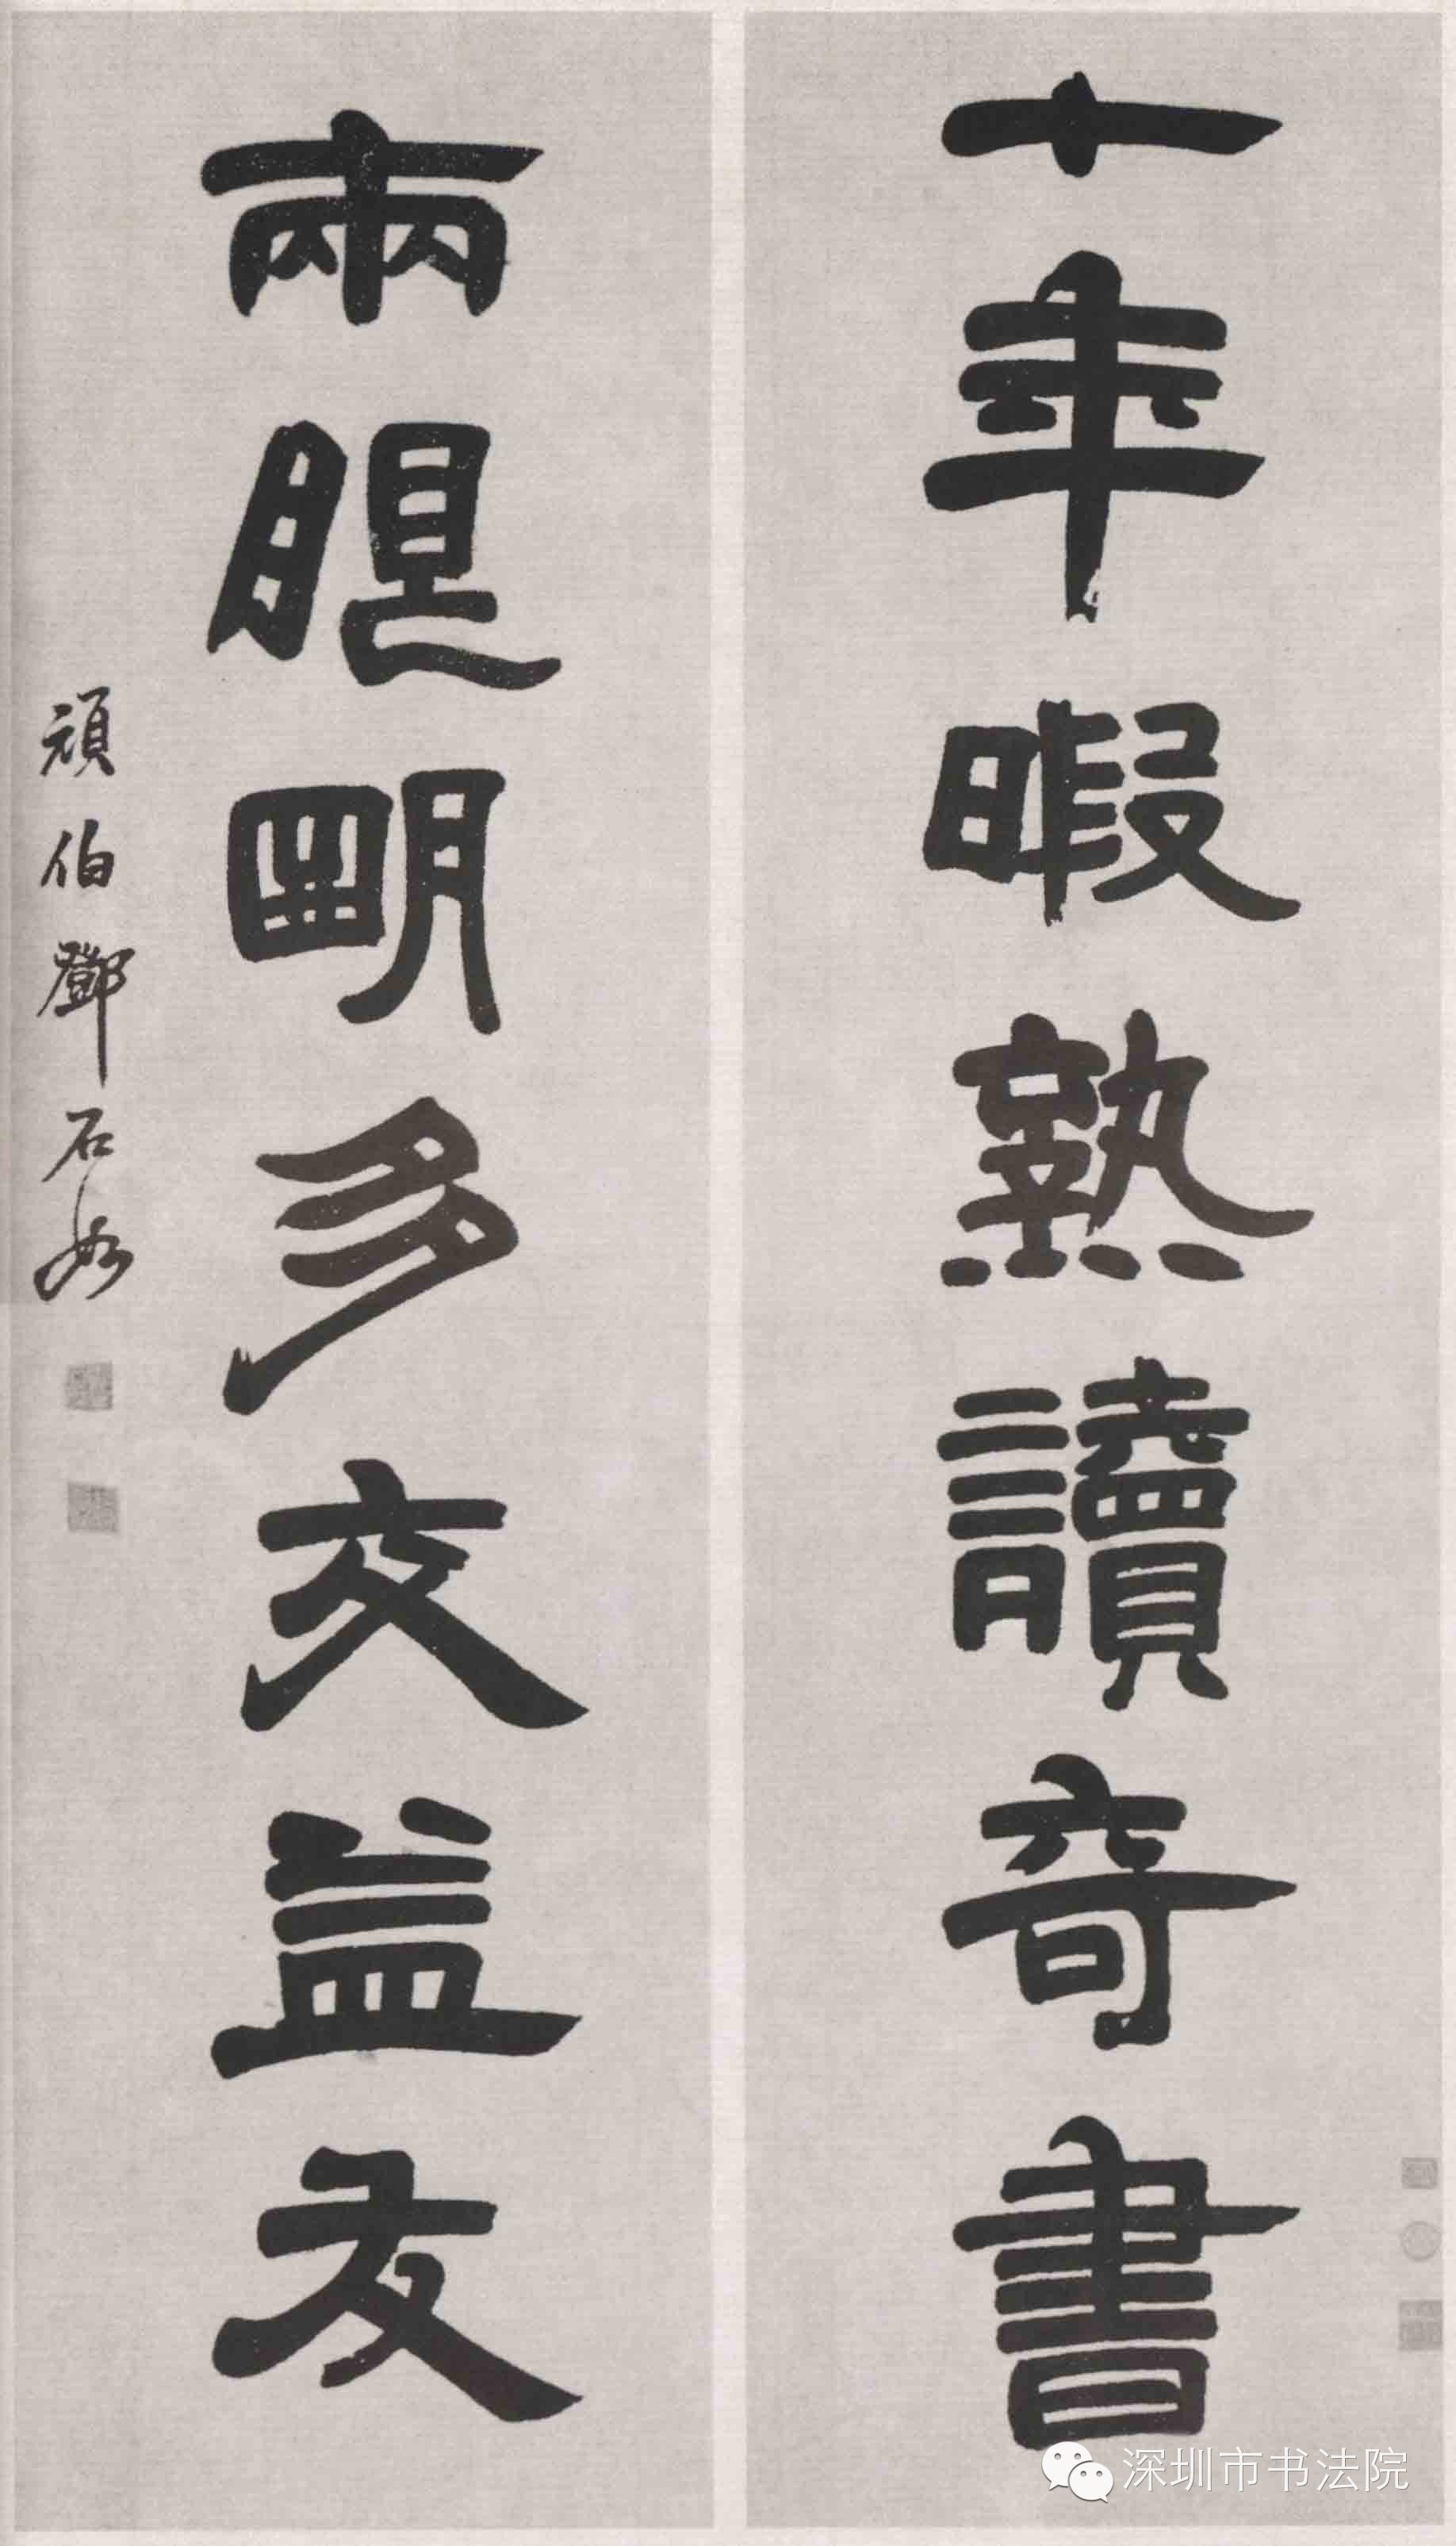 十年暇熟讀奇書
兩眼明多交益友
頑伯鄧石如
深圳市书法院